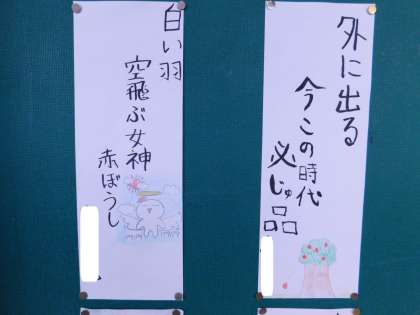 外に出る
今この時代
必じゅ品
白い羽
空飛ぶ女神
赤ぼうし